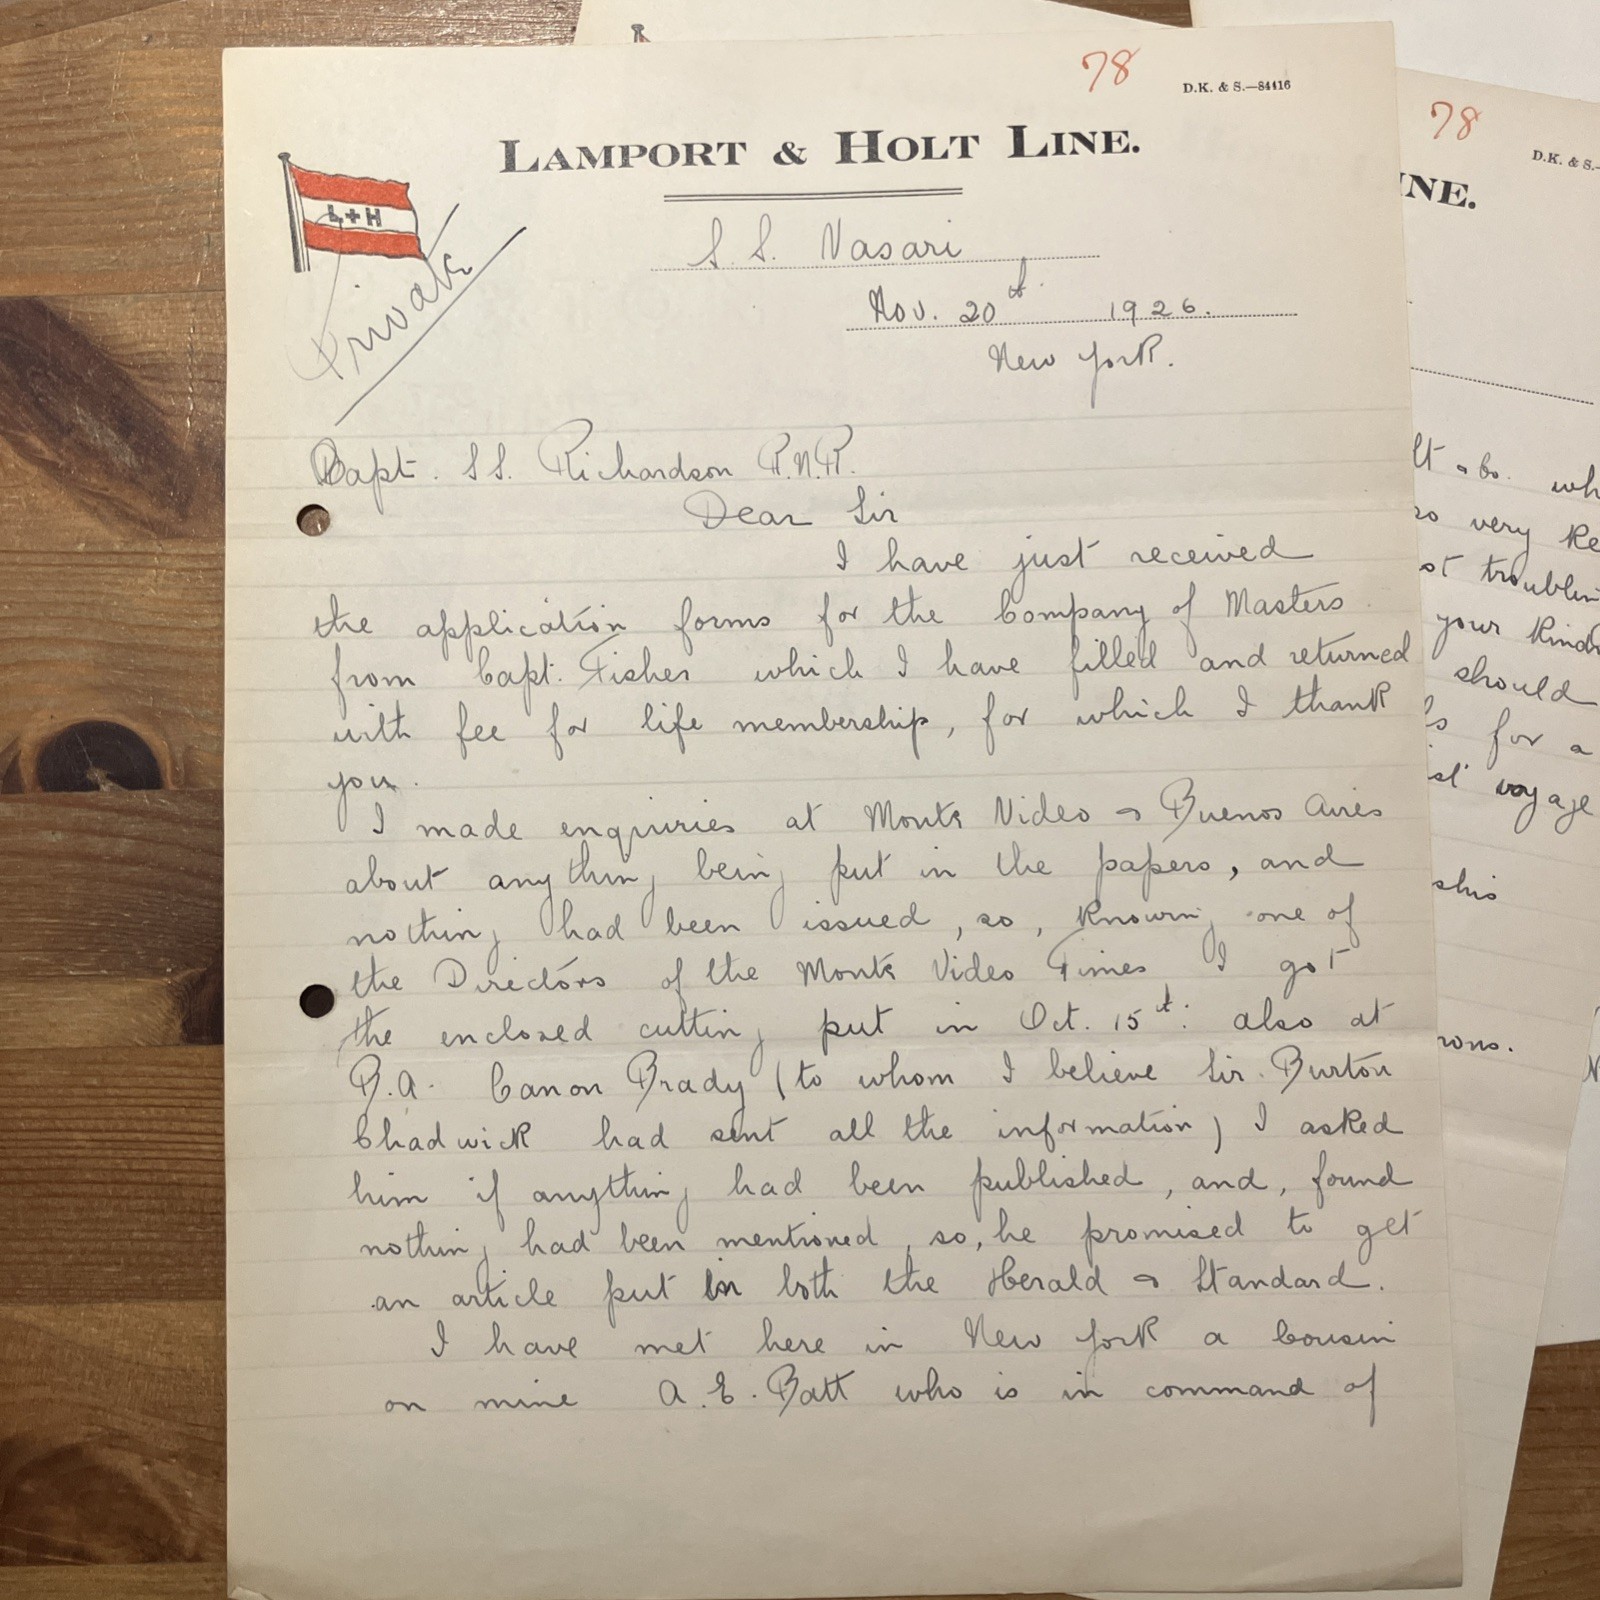 78
D.K. & S.—84416
LAMPORT & HOLT LINE.
L+H
Private
S.S. Vasari
Nov. 20th 1926.
New York.
Capt. SS. Richardson R.N.R.
Dear Sir
I have just received
the application forms for the Company of Masters
from Capt. Fisher which I have filled and returned
with fee for life membership, for which I thank
you.
I made enquiries at Monte Video & Buenos Aires
about anything being put in the papers, and
nothing had been issued, so, knowing one of
the Directors of the Monte Video Times I got
the enclosed cutting put in Oct. 15th: also at
B.A. Canon Brady (to whom I believe Sir. Burton
Chadwick had sent all the information) I asked
him if anything had been published, and, found
nothing had been mentioned, so, he promised to get
an article put in both the Herald & Standard.
I have met here in New York a Cousin
on mine A.E. Batt who is in command of
78
D.K. & S.—
INE.
wh
so very Ke
st troublin
your kind
should
for a
voyage
this